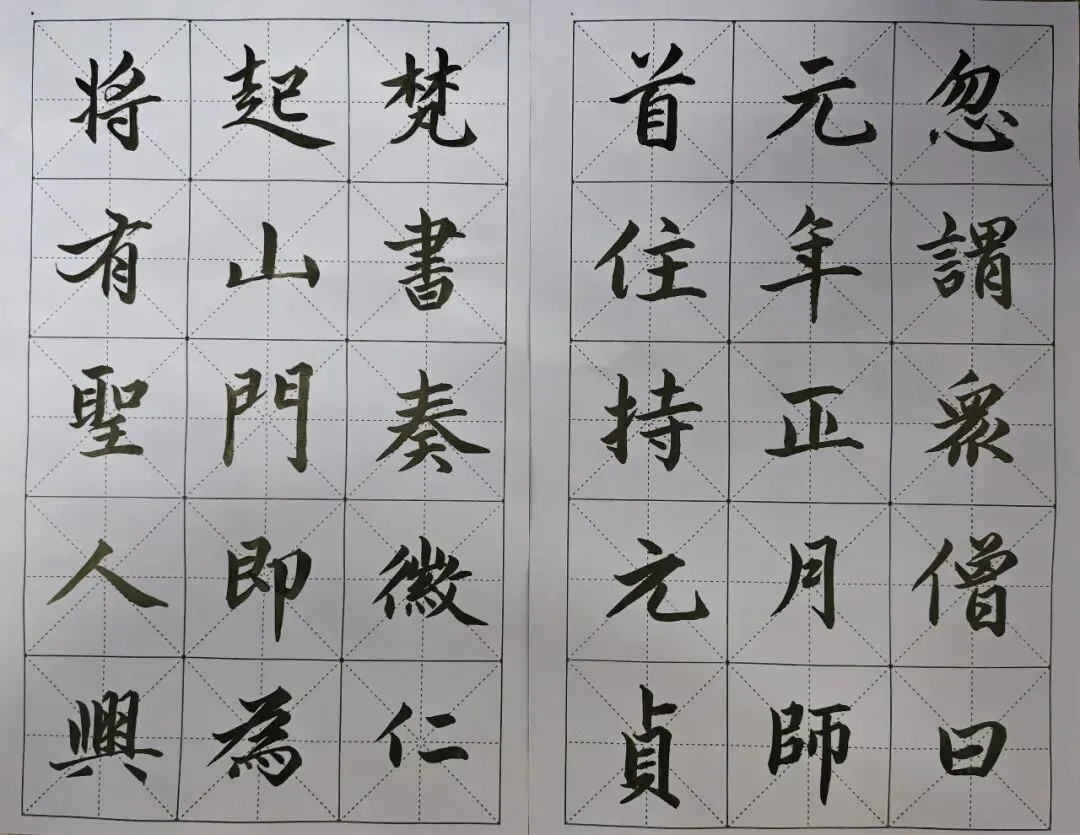 首住持元貞
元年正月師
忽謂衆僧曰
将有聖人興
起山門即為
梵書奏徽仁